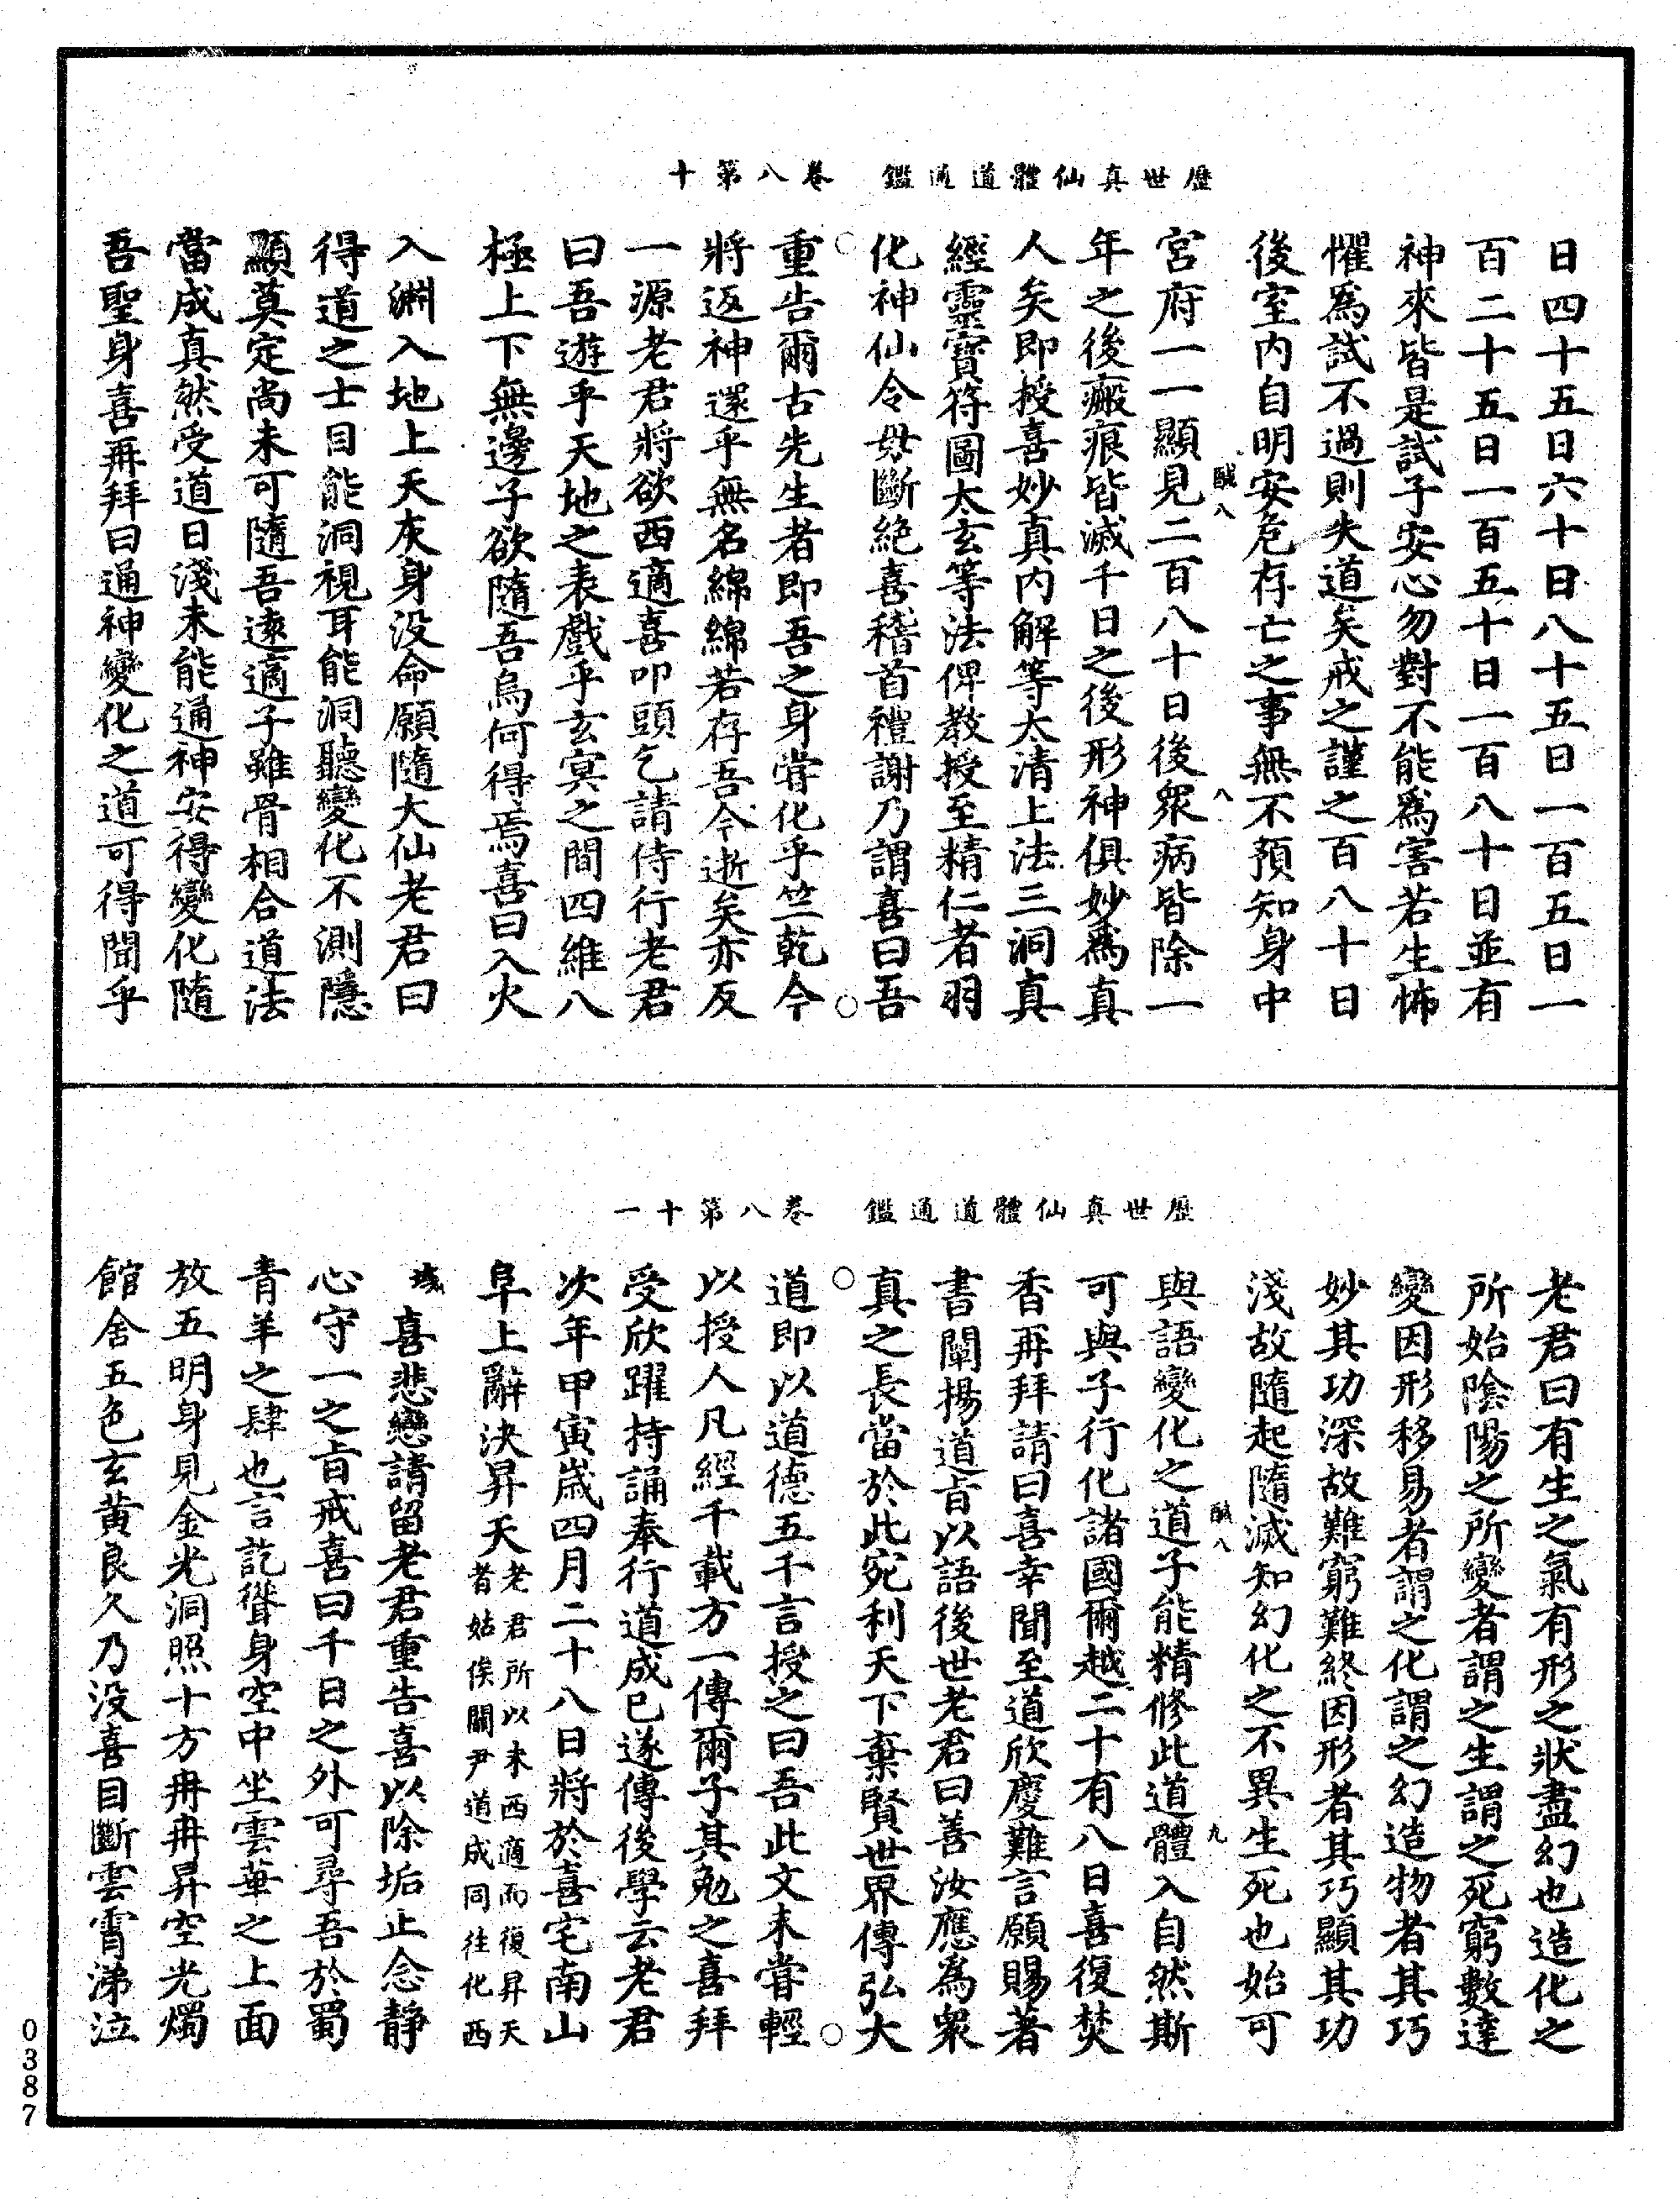 歷世真仙體道通鑑　卷八第十
日四十五日六十日八十五日一百五日一
百二十五日一百五十日一百八十日並有
神來皆是試子安心勿對不能爲害若生怖
懼爲試不過則失道矣戒之謹之百八十日
後室内自明安危存亡之事無不預知身中
醎八
八
宮府一一顯見二百八十日後衆病皆除一
年之後瘢痕皆滅千日之後形神俱妙爲真
人矣即授喜妙真内解等太清上法三洞真
經靈寶符圖太玄等法俾教授至精仁者羽
化神仙令毋斷絶喜稽首禮謝乃謂喜曰吾
重告爾古先生者即吾之身嘗化乎竺乾今
將返神還乎無名綿綿若存吾今逝矣亦反
一源老君將欲西適喜叩頭乞請侍行老君
曰吾遊乎天地之表戲乎玄冥之間四維八
極上下無邊子欲隨吾烏何得焉喜曰入火
入淵入地上天灰身没命願隨大仙老君曰
得道之士目能洞視耳能洞聽變化不測隱
顯莫定尚未可隨吾遠適子雖骨相合道法
當成真然受道日淺未能通神安得變化隨
吾聖身喜再拜曰通神變化之道可得聞乎
歷世真仙體道通鑑　卷八第十一
老君曰有生之氣有形之狀盡幻也造化之
所始陰陽之所變者謂之生謂之死窮數達
變因形移易者謂之化謂之幻造物者其巧
妙其功深故難窮難終因形者其巧顯其功
淺故隨起隨滅知幻化之不異生死也始可
醎八
九
與語變化之道子能精修此道體入自然斯
可與子行化諸國爾越二十有八日喜復焚
香再拜請曰喜幸聞至道欣慶難言願賜著
書闡揚道旨以語後世老君曰善汝應為衆
真之長當於此宛利天下棄賢世界傳弘大
道即以道德五千言授之曰吾此文未嘗輕
以授人凡經千載方一傳爾子其勉之喜拜
受欣躍持誦奉行道成已遂傳後學云老君
次年甲寅歲四月二十八日將於喜宅南山
阜上辭決昇天老君所以未西適而復昇天
者姑俟關尹道成同往化西
域
喜悲戀請留老君重告喜以除垢止念静
心守一之旨戒喜曰千日之外可尋吾於蜀
青羊之肆也言訖聳身空中坐雲華之上面
放五明身見金光洞照十方冉冉昇空光燭
館舍五色玄黄良久乃没喜目斷雲霄涕泣
0387